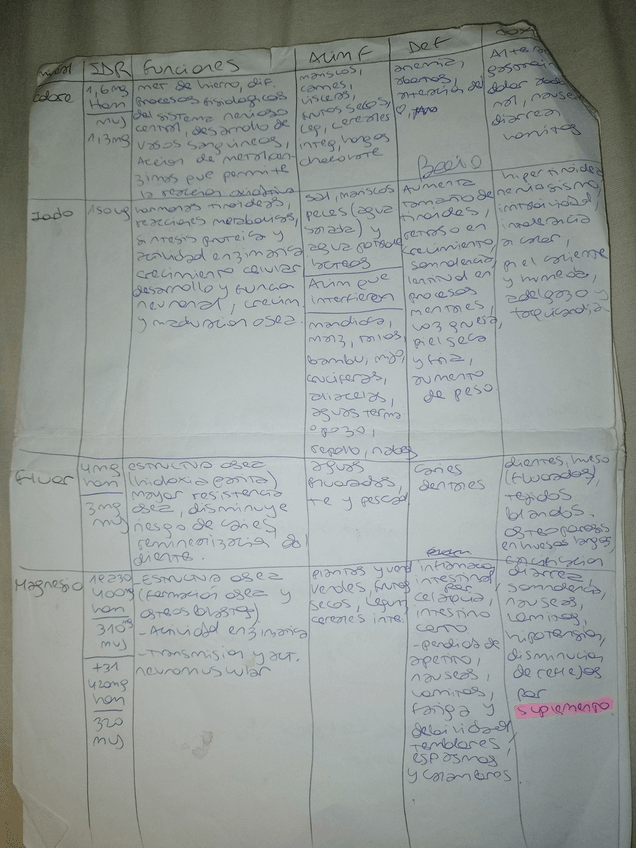 IDR
Funciones
Alim F
Def
Cobre
1,6mg
Hom
muj
1,3mg
met de hierro, dif.
procesos fisiologicos
del sistema nervioso
central, desarrollo de
vasos sanguineos,
Accion de metaloen
zimas que permite
la reaccion
mariscos,
carnes,
visceras,
frutos secos,
cereales
integ, hongos
chocolate
anemia,
diarrea,
vomitos
Iodo
150ug
hormonas tiroideas,
reacciones metabolicas,
sintesis proteica y
actividad enzimatica
crecimiento celular
desarrollo y funcion
neuronal, crecim
y maduracion osea.
sal, mariscos
peces (agua
salada) y
agua potable
lacteos
Alim que
interfieren
mandioca,
maiz, tallos
bambu, mijo,
cruciferas,
aliaceas,
aguas terma
pozo,
repollo, nabos
Bocio
Aumenta
tamaño de
tiroides,
retraso en
crecimiento,
somnolencia,
lentitud en
procesos
mentales,
voz gruesa,
piel seca
y fria,
aumento
de peso
hipertiroidea
nerviosismo,
intolerancia
a calor,
piel caliente
y humeda,
adelgazo y
taquicardia
Fluor
4mg
hom
3mg
muj
estructura osea
(hidroxiapatita)
mayor resistencia
osea, disminuye
riesgo de caries,
remineralizacion del
diente.
aguas
fluoradas,
te y pescad
caries
dentales
dientes, hueso
(fluorados)
tejidos
blandos.
osteoporosis
en huesos largos,
Magnesio
19 a 30
400mg
hom
310mg
muj
+31
420mg
hom
320
muj
-Estructura osea
(formacion osea y
osteoblastos)
-Actividad enzimatica
-Transmision y act.
neuromuscular
plantas y verd
verdes, frutos
secos, legum
cereales inte.
inflamacion
intestinal por
celiaquia,
intestino
corto
-perdida de
apetito,
nauseas,
vomitos,
fatiga y
debilidad,
temblores,
espasmos
y calambres
diarrea,
somnolencia,
nauseas,
vomitos,
hipotension,
disminucion
de reflejos
por
suplemento